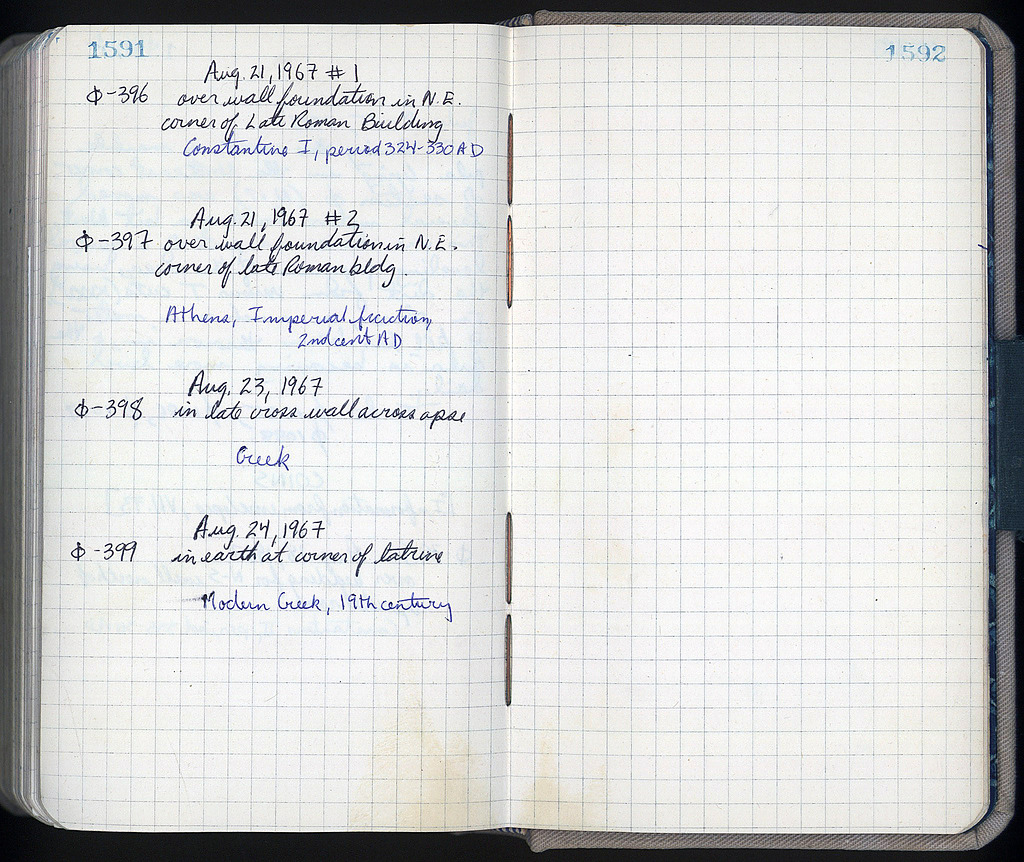 1591
Aug. 21, 1967 # 1
Φ-396 over wall foundation in N.E.
corner of Late Roman Building
Constantine I, period 324-330 AD
Aug. 21, 1967 # 2
Φ-397 over wall foundation in N.E.
corner of late Roman bldg.
Athens, Imperial fraction,
2nd cent AD
Aug. 23, 1967
Φ-398 in late cross wall across apse
Greek
Aug. 24, 1967
Φ-399 in earth at corner of latrine
Modern Greek, 19th century
1592